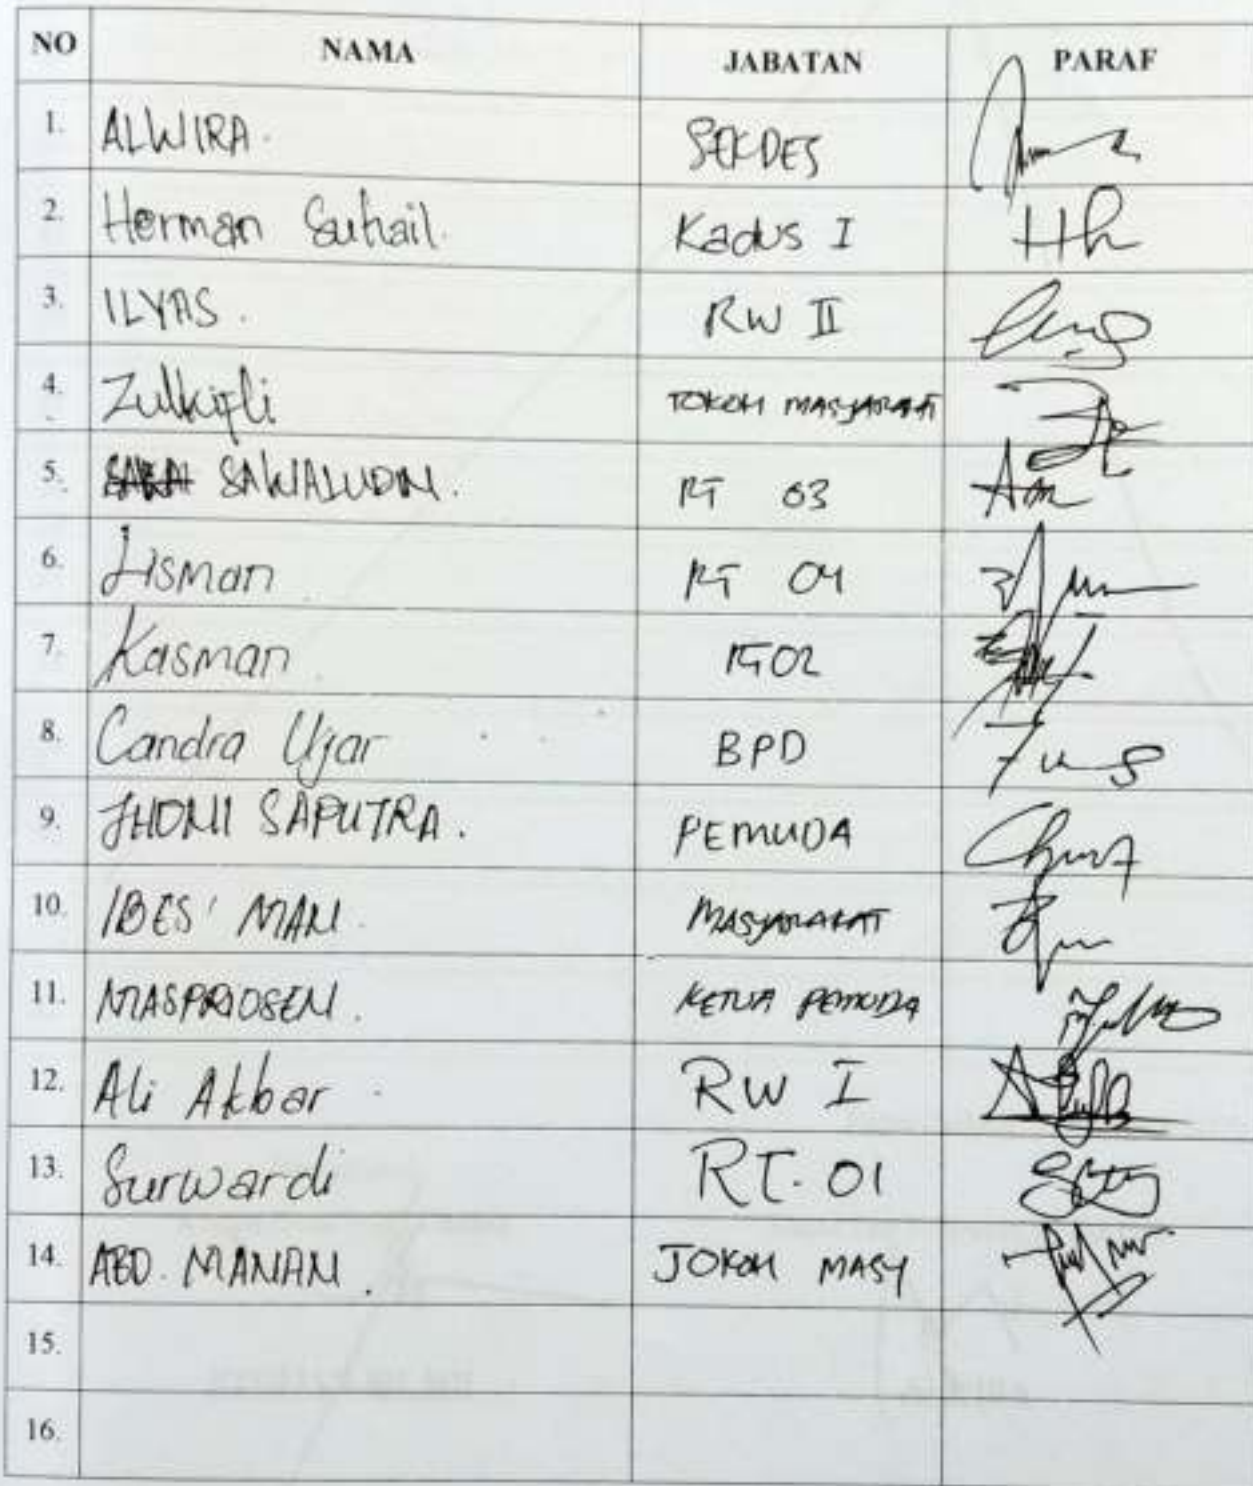 NO NAMA JABATAN PARAF
1. ALWIRA. SEKDES
2. Herman Suhail. Kadus I Hh
3. ILYAS. RW II
4. Zulkifli TOKOH MASYARAKAT
5. SAWALUDIN. RT 03
6. Lisman RT 04
7. Kasman RT 02
8. Candra Ujar BPD
9. JHONI SAPUTRA. PEMUDA
10. IBES' MAN. MASYARAKAT
11. MASPRIOSEN. KETUA PEMUDA
12. Ali Akbar RW I
13. Surwardi RT. 01
14. ABD. MANAN. TOKOH MASY
15.
16.